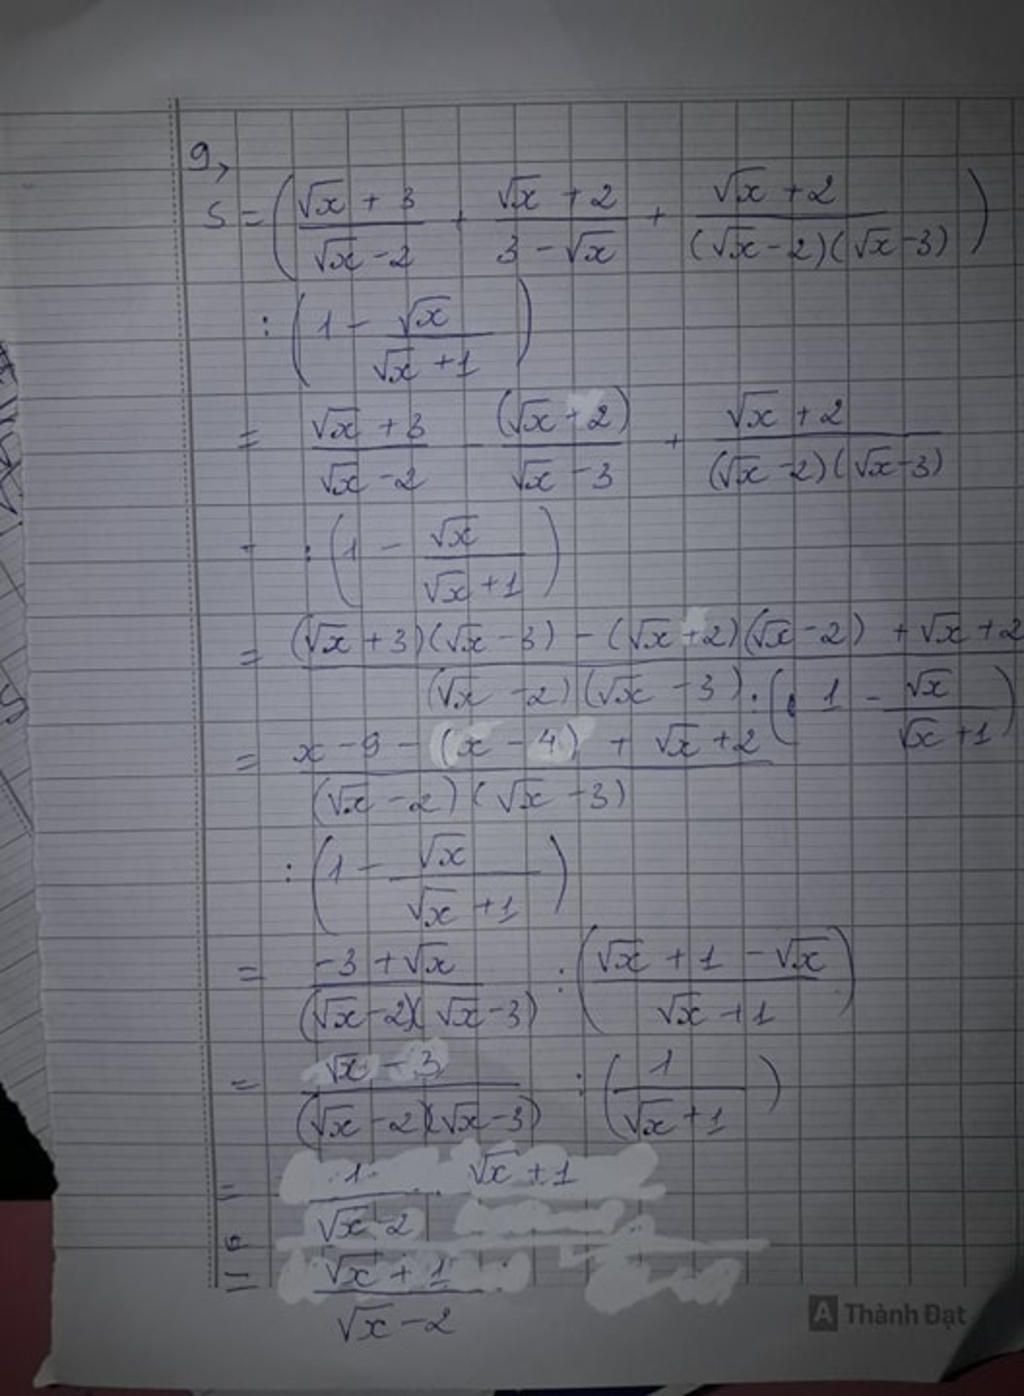 9,
S = ( (√x + 3)/(√x - 2) + (√x + 2)/(3 - √x) + (√x + 2)/((√x - 2)(√x - 3)) )
: ( 1 - √x/(√x + 1) )
= (√x + 3)/(√x - 2) - (√x + 2)/(√x - 3) + (√x + 2)/((√x - 2)(√x - 3))
: ( 1 - √x/(√x + 1) )
= ((√x + 3)(√x - 3) - (√x + 2)(√x - 2) + √x + 2)/((√x - 2)(√x - 3)) : ( 1 - √x/(√x + 1) )
= (x - 9 - (x - 4) + √x + 2)/((√x - 2)(√x - 3))
: ( 1 - √x/(√x + 1) )
= (-3 + √x)/((√x - 2)(√x - 3)) : ( (√x + 1 - √x)/(√x + 1) )
= (√x - 3)/((√x - 2)(√x - 3)) : ( 1/(√x + 1) )
= 1/(√x - 2) . √x + 1
= (√x + 1)/(√x - 2)
A Thành Đạt